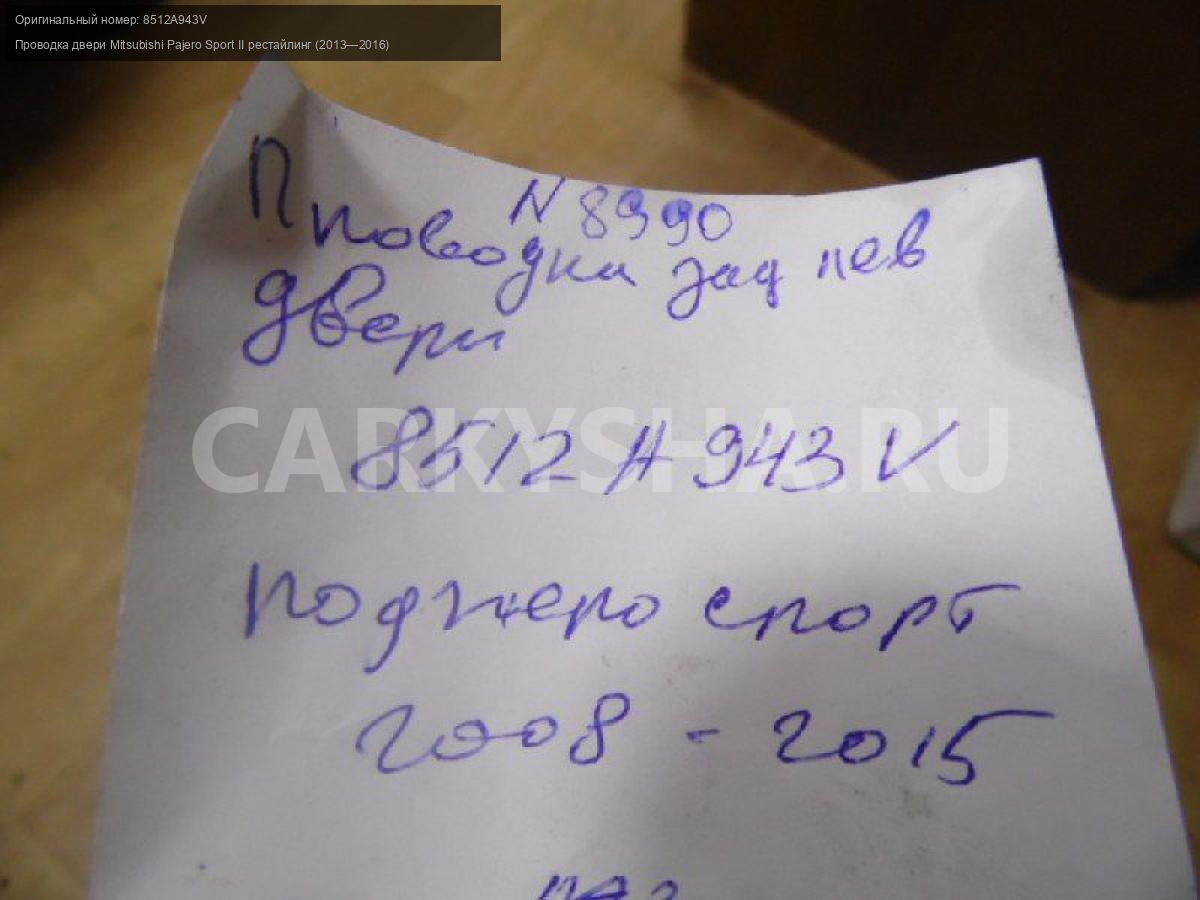 Оригинальный номер: 8512A943V
Проводка двери Mitsubishi Pajero Sport II рестайлинг (2013—2016)
N 8990
П проводки зад лев
двери
CARKYSHA.RU
8512 A 943 V
поджеро спорт
2008 - 2015